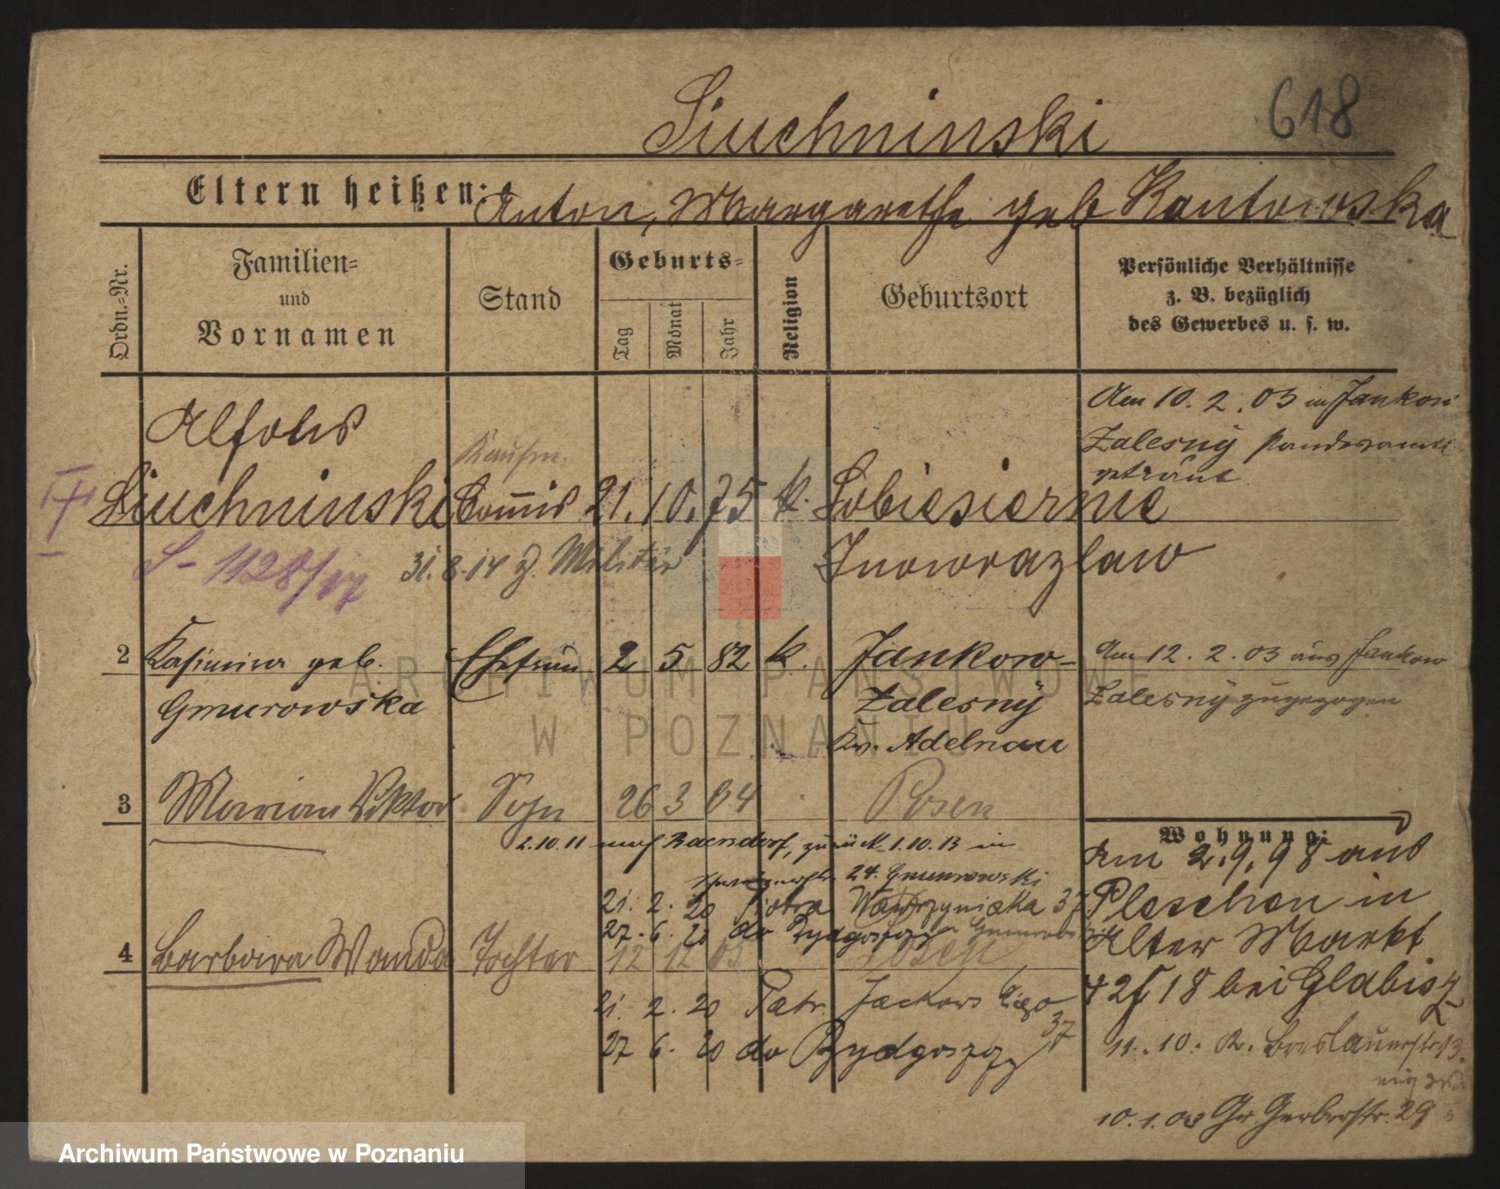 618
Siuchninski
Eltern heißen: Anton, Margarethe geb Kantowska
Ordn.=Nr.
Familien=
und
Vornamen
Stand
Geburts=
Tag
Monat
Jahr
Religion
Geburtsort
Persönliche Verhältnisse
z. B. bezüglich
des Gewerbes u. s. w.
Alfons
Siuchninski
Kaufm.
Commis 21. 10. 75 k. Sobiesiernie
Inowrazlaw
Am 10. 2. 03 in Jankow
Zalesny Standesamt
getraut
S-1128/17
31. 8. 14 z. Militär
2 Kasimira geb. Ehefrau 2 5 82 k. Jankow-
Gmurowska
Zalesny
Kr. Adelnau
Am 12. 2. 03 aus Jankow
Zalesny zugezogen
3 Marian Viktor Sohn 26 3 04 Posen
2.10.11 nach Baersdorf, zurück 1.10.13 in
24. Gmurowski
21. 2. 20 Wawrzyniaka 37
27. 6. 20 do Bydgoszczy
4 Barbara Wanda Tochter 12 12 05 Posen
21. 2. 20 Patr. Jackowskiego 37
27 6. 20 do Bydgoszczy
Wohnung:
Am 2. 9. 98 aus
Pleschen in
Alter Markt
42 18 bei Glabisz
11. 10. Breslauerstr
10. 1. 03 Gr. Gerberstr. 29
ARCHIWUM PAŃSTWOWE
W POZNANIU
Archiwum Państwowe w Poznaniu